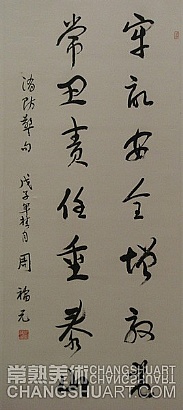 牢記安全增效益
常卫责任重泰山
消防聯句
戊子年秋月
周福元
常熟美術 CHANGSHUART